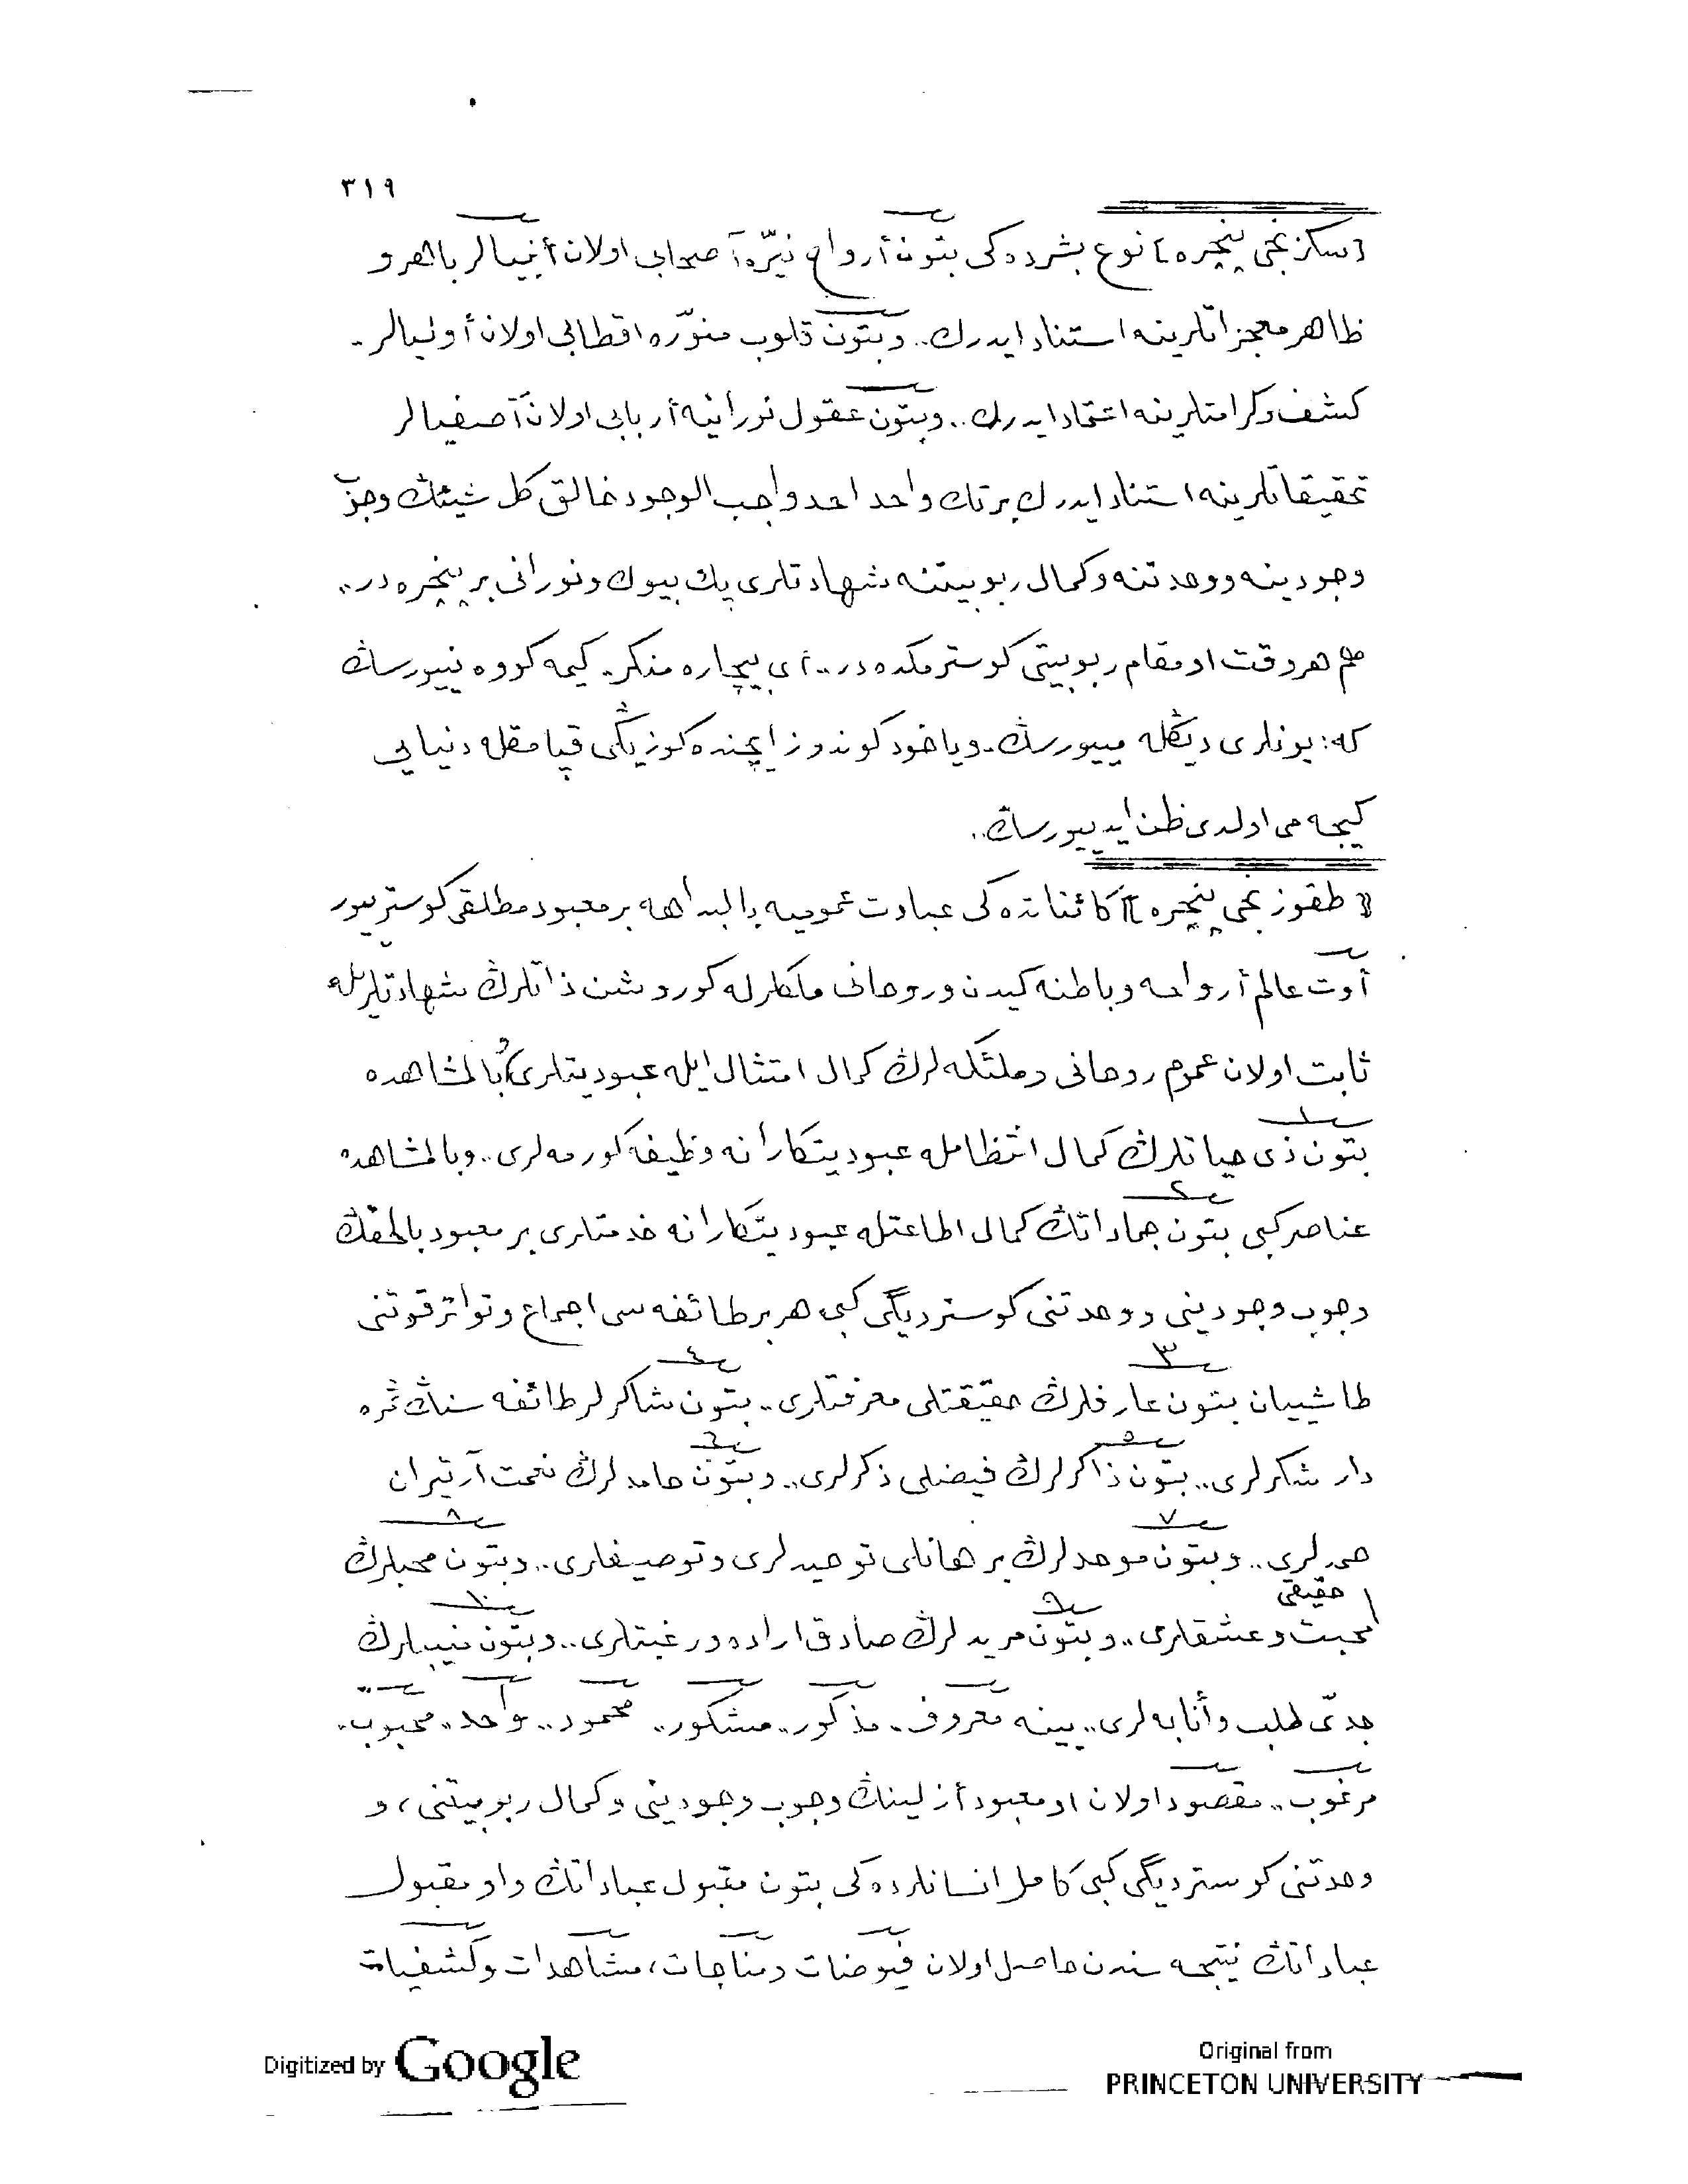 ٣١٩
[سكزنجى پنجره] نوع بشرده كى بتون أرواح نيّره آصحابى اولان أنبيالر باهر و
ظاهر معجزاتلرينه استناد ايدرك.. وبتون قلوب منوّره اقطابى اولان أوليالر.
كشف وكرامتلرينه اعتماد ايدرك.. وبتون عقول نورانيه أربابى اولان آصفيالر
تحقيقاتلرينه استناد ايدرك بر تك واحد احد واجب الوجود خالق كل شيئڭ وجوب
وجودينه ووحدتنه وكمال ربوبيتنه شهادتلرى پك بيوك ونورانى بر پنجره در..
هم هر وقت او مقام ربوبيتى كوسترمكده در.. أى بيچاره منكر. كيمه كووه نييورسڭ
كه: بونلرى ديڭله مييورسڭ. وياخود كوندوز ايچنده كوزيڭى قپامقله دنيايى
كيجه مى اولدى ظن ايدييورسڭ..
[طقوزنجى پنجره] كائناتده كى عبادت عموميه بالبداهه بر معبود مطلقى كوستريبور
آوت عالم أرواحه وباطنه كيدن وروحانى ملكلرله كوروشن ذاتلرڭ شهادتلريله
ثابت اولان عموم روحانى وملئكه لرڭ كمال امتثال ايله عبوديتلرى و بالمشاهده
بتون ذى حياتلرڭ كمال انتظامله عبوديتكارانه وظيفه كورمه لرى.. وبالمشاهده
عناصر كبى بتون جماداتڭ كمال اطاعتله عبوديتكارانه خدمتلرى بر معبود بالحقڭ
وجوب وجودينى ووحدتنى كوسترديگى كبى هر بر طائفه سى اجماع وتواتر قوتنى
طاشييان بتون عارفلرڭ حقيقتلى معرفتلرى.. بتون شاكرلر طائفه سنڭ ثمره
دار شكرلرى.. بتون ذاكرلرڭ فيضلى ذكرلرى.. وبتون حامدلرڭ نعمت آرتيران
حمدلرى.. وبتون موحدلرڭ برهانلى توحيدلرى وتوصيفلرى.. وبتون محبلرڭ
حقيقى
محبت وعشقلرى.. وبتون مريدلرڭ صادق اراده ورغبتلرى.. وبتون منيبلرڭ
جدّى طلب وأنابه لرى.. يينه معروف.. مذكور.. مشكور.. محمود.. واحد.. محبوب..
مرغوب.. مقصود اولان او معبود أزلينڭ وجوب وجودينى وكمال ربوبيتنى، و
وحدتنى كوسترديگى كبى كامل انسانلرده كى بتون مقبول عباداتڭ واو مقبول
عباداتڭ نتيجه سندن حاصل اولان فيوضات ومناجات، مشاهدات وكشفيات
Digitized by Google
Original from
PRINCETON UNIVERSITY